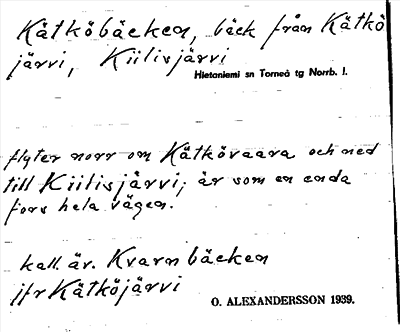 Kätköbäcken, bäck från Kätkö
järvi, Kiilisjärvi
Hietaniemi sn Torneå tg Norrb. l.
flyter norr om Kätkövaara och ned
till Kiilisjärvi; är som en enda
fors hela vägen.
kall. äv. Kvarnbäcken
jfr Kätköjärvi
O. ALEXANDERSSON 1939.